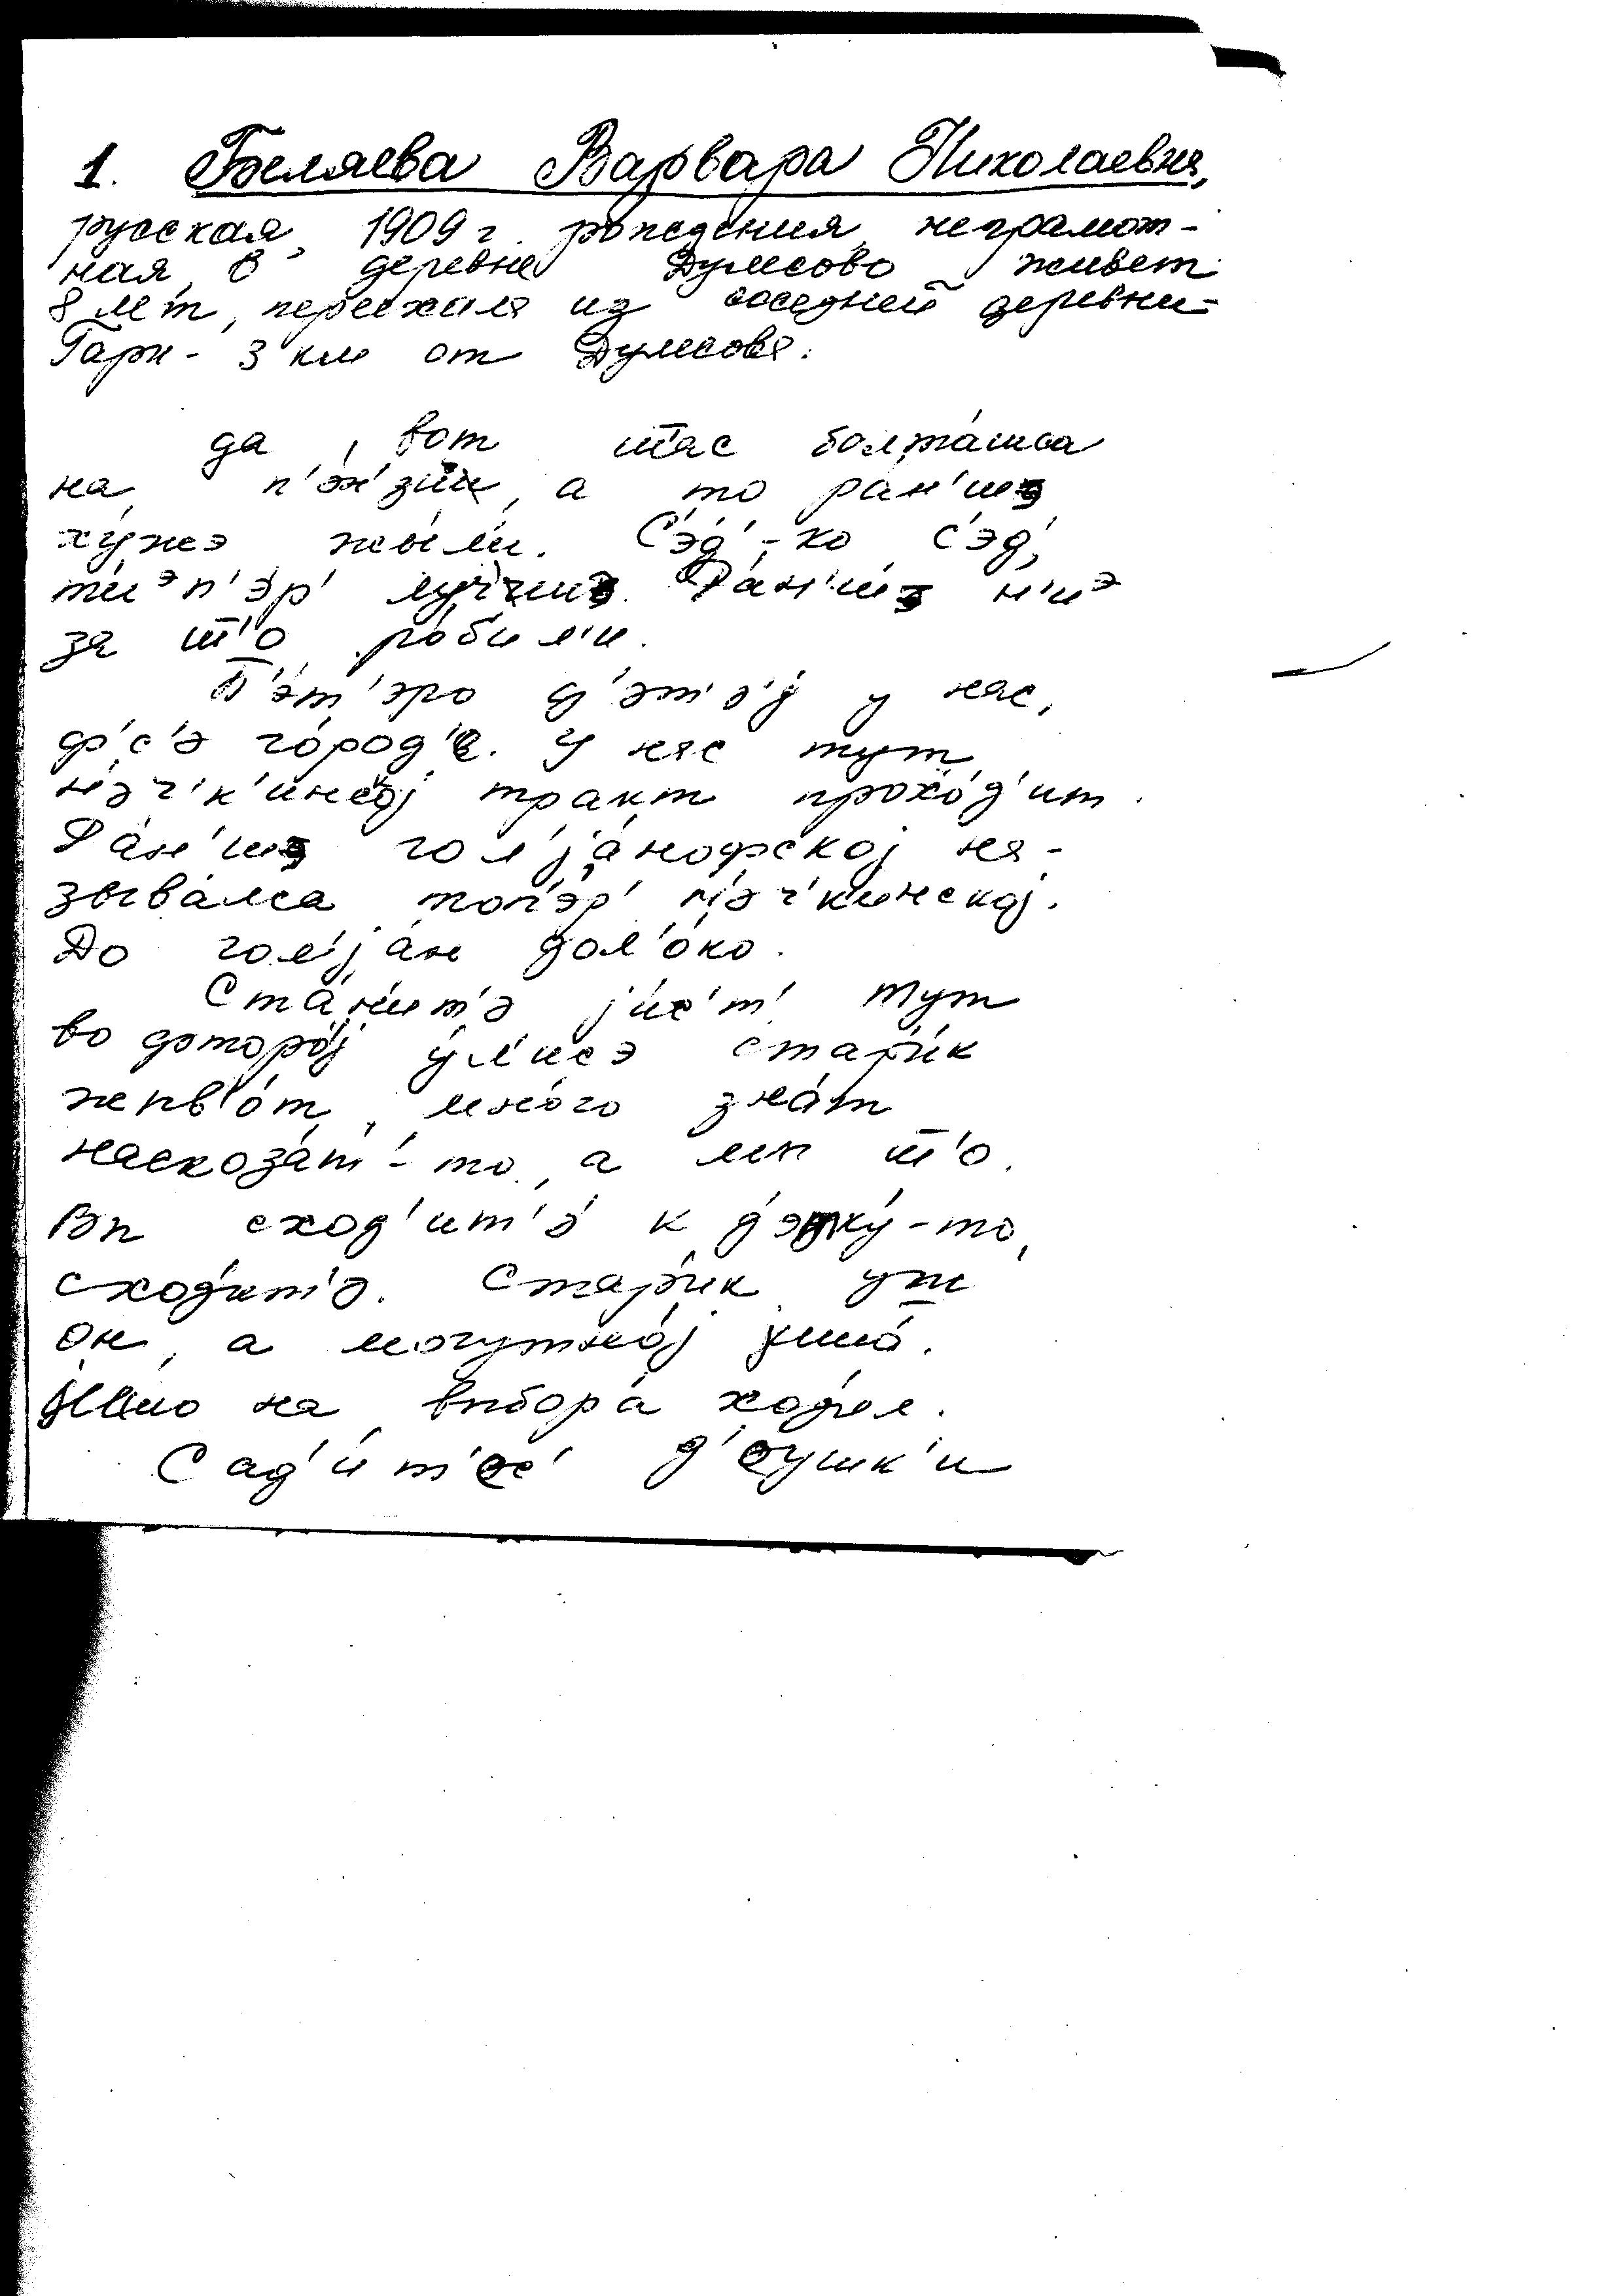 1. Беляева Варвара Николаевна,
русская, 1909 г. рождения, неграмот-
ная, в деревне Думсово живет
8 лет, переехала из соседней деревни-
Гари - 3 км от Думсова.
да, вот шас болта́шса
на п'э́н'зии, а то ра́н'шэ
ху́жэ жы́ли. С'эд'-ко с'эд',
тиэп'э́р' лу́чшэ. Ра́н'шэ н'иэ
за што ро́бил'и.
П'э́т'эро д'эт'э́j у нас,
ф'с'э го́род'е. У нас тут
н'эч'к'инскоj тракт прохо́д'ит.
Ра́н'шэ гол'jа́нофскоj на-
зыва́лса топ'э́р' н'эч'кинскоj.
До гол'jа́н дол'о́ко.
Ста́ншт'э jис'т' тут
во фторо́j у́л'исэ стари́к
жыв'о́т, мно́го зна́т
наскоза́т'-то, а мы што.
Вы сход'ит'э́ к д'э́тку-то,
сход'ит'э. Стар'и́к уш
он, а могутно́j ишшо́.
Ишшо на выбора́ ход'ил.
Сад'и́т'ес' д'эушк'и